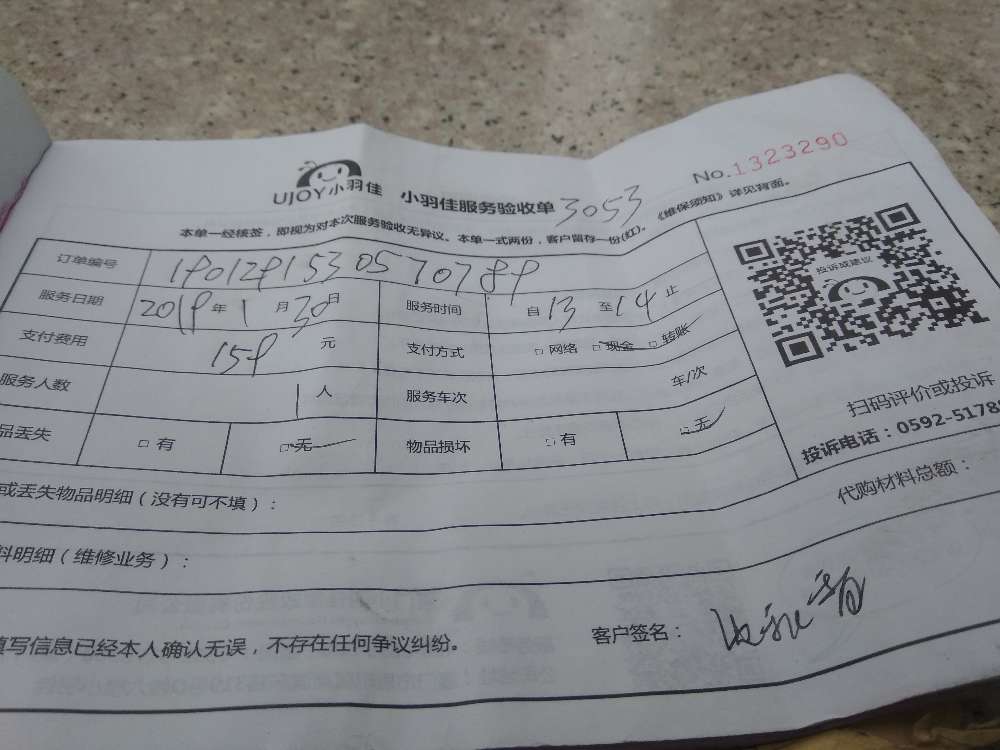 UJOY小羽佳 小羽佳服务验收单 3053 No.1323290
本单一经核签，即视为对本次服务验收无异议。本单一式两份，客户留存一份(红)。《维保须知》详见背面。
订单编号 19012915305707899
服务日期 2019年1月30日 服务时间 自13至14止
支付费用 159元 支付方式 □网络 □现金 □转账
服务人数 1人 服务车次 车/次
品丢失 □有 □无 物品损坏 □有 □无
投诉或建议
扫码评价或投诉
投诉电话：0592-5178
或丢失物品明细（没有可不填）：
代购材料总额：
料明细（维修业务）：
填写信息已经本人确认无误，不存在任何争议纠纷。 客户签名：